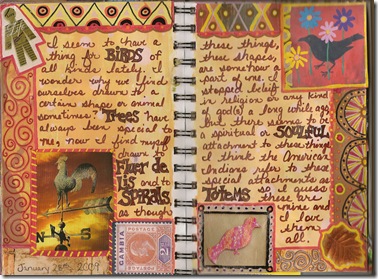 I seem to have a
thing for BIRDS of
all kinds lately. I
wonder why we find
ourselves drawn to
certain shape or animal
sometimes. Trees have
always been special to
me, now I find myself
drawn to
Fleur de
lis and to
SPIRALS.
as though
N
S
GAMBIA
POSTAGE
January 28th, 2009
these things,
these shapes,
are somehow a
part of me. I
stopped belief
in religion or any kind
of god(s) a long while ago,
but there seems to be
a spiritual or SOULFUL
attachment to these things.
I think the American
Indians refer to these
special attachments as
TOTEMS so I guess
these are
mine and
I love
them
all.